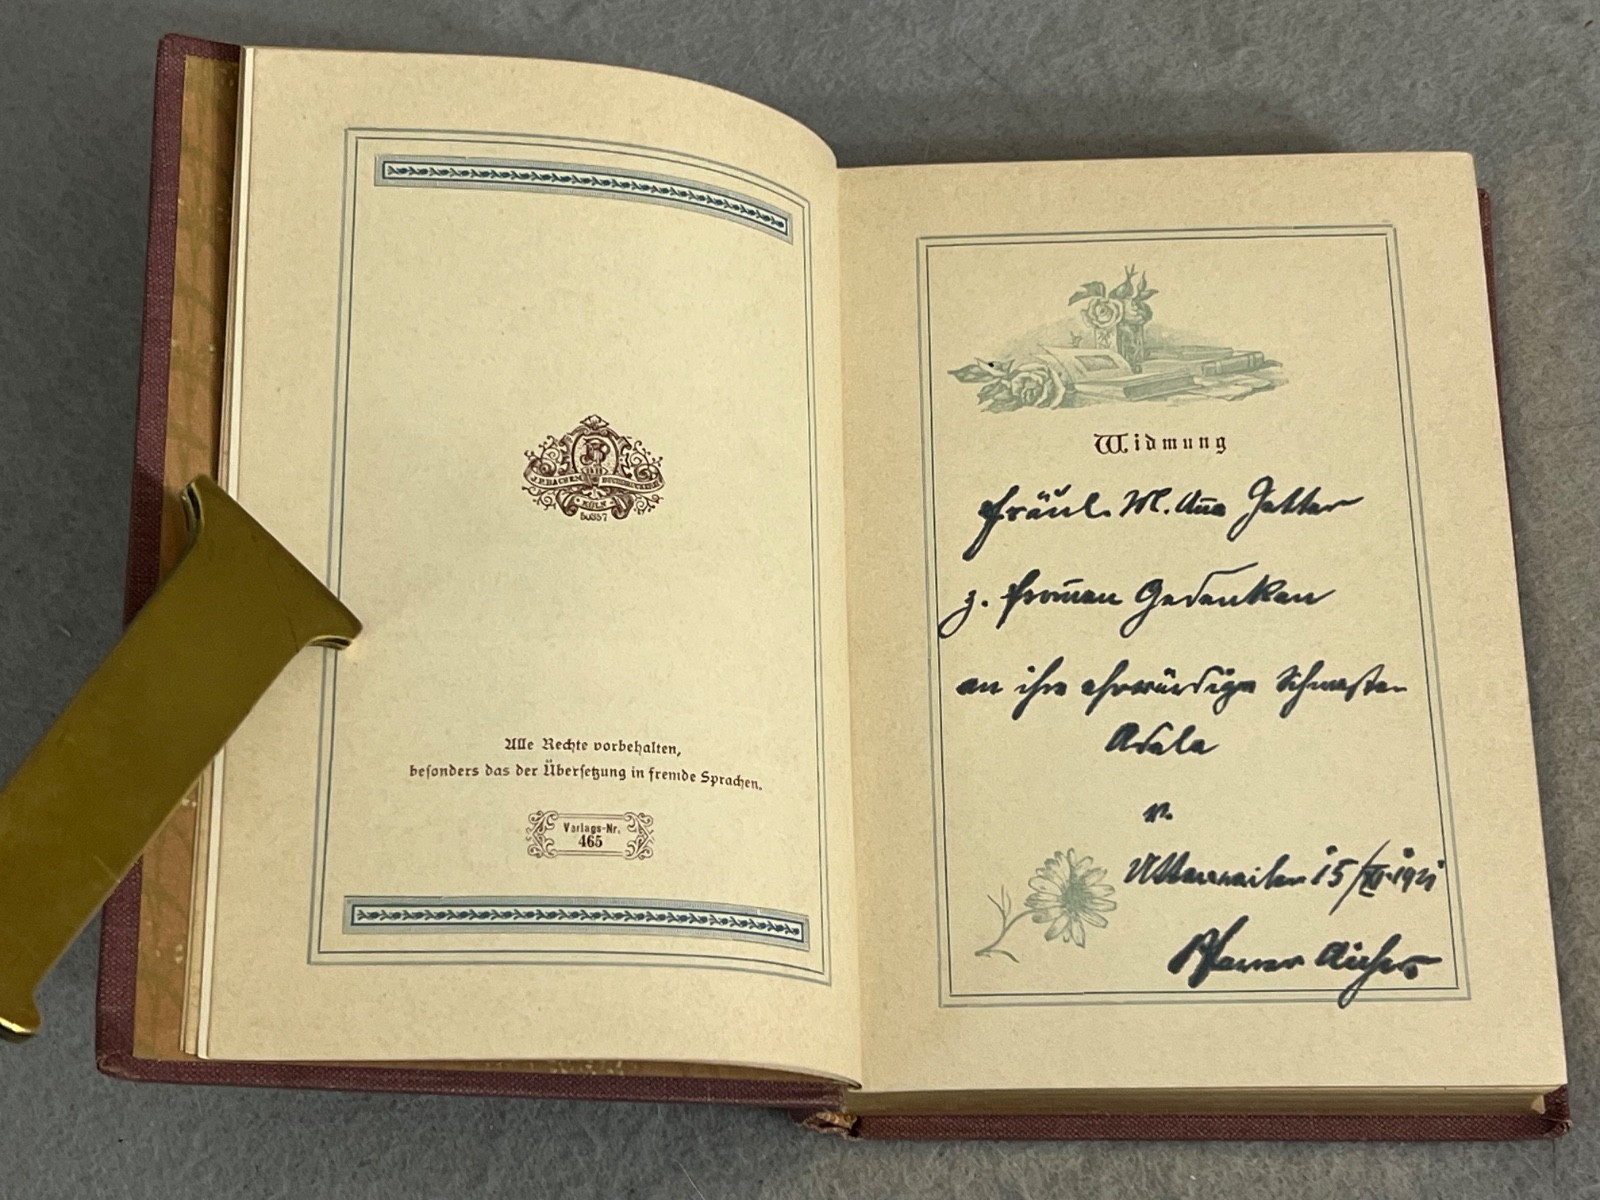 J. P. BACHEM BUCHDRUCKEREI
KÖLN
Alle Rechte vorbehalten,
besonders das der Übersetzung in fremde Sprachen.
Verlags-Nr.
465
Widmung
Fräul. M. Anna Getter
z. frommen Gedenken
an ihre ehrwürdige Schwester
Adela
v.
Uttenweiler 15/XI. 1921
Pfarrer Aicher